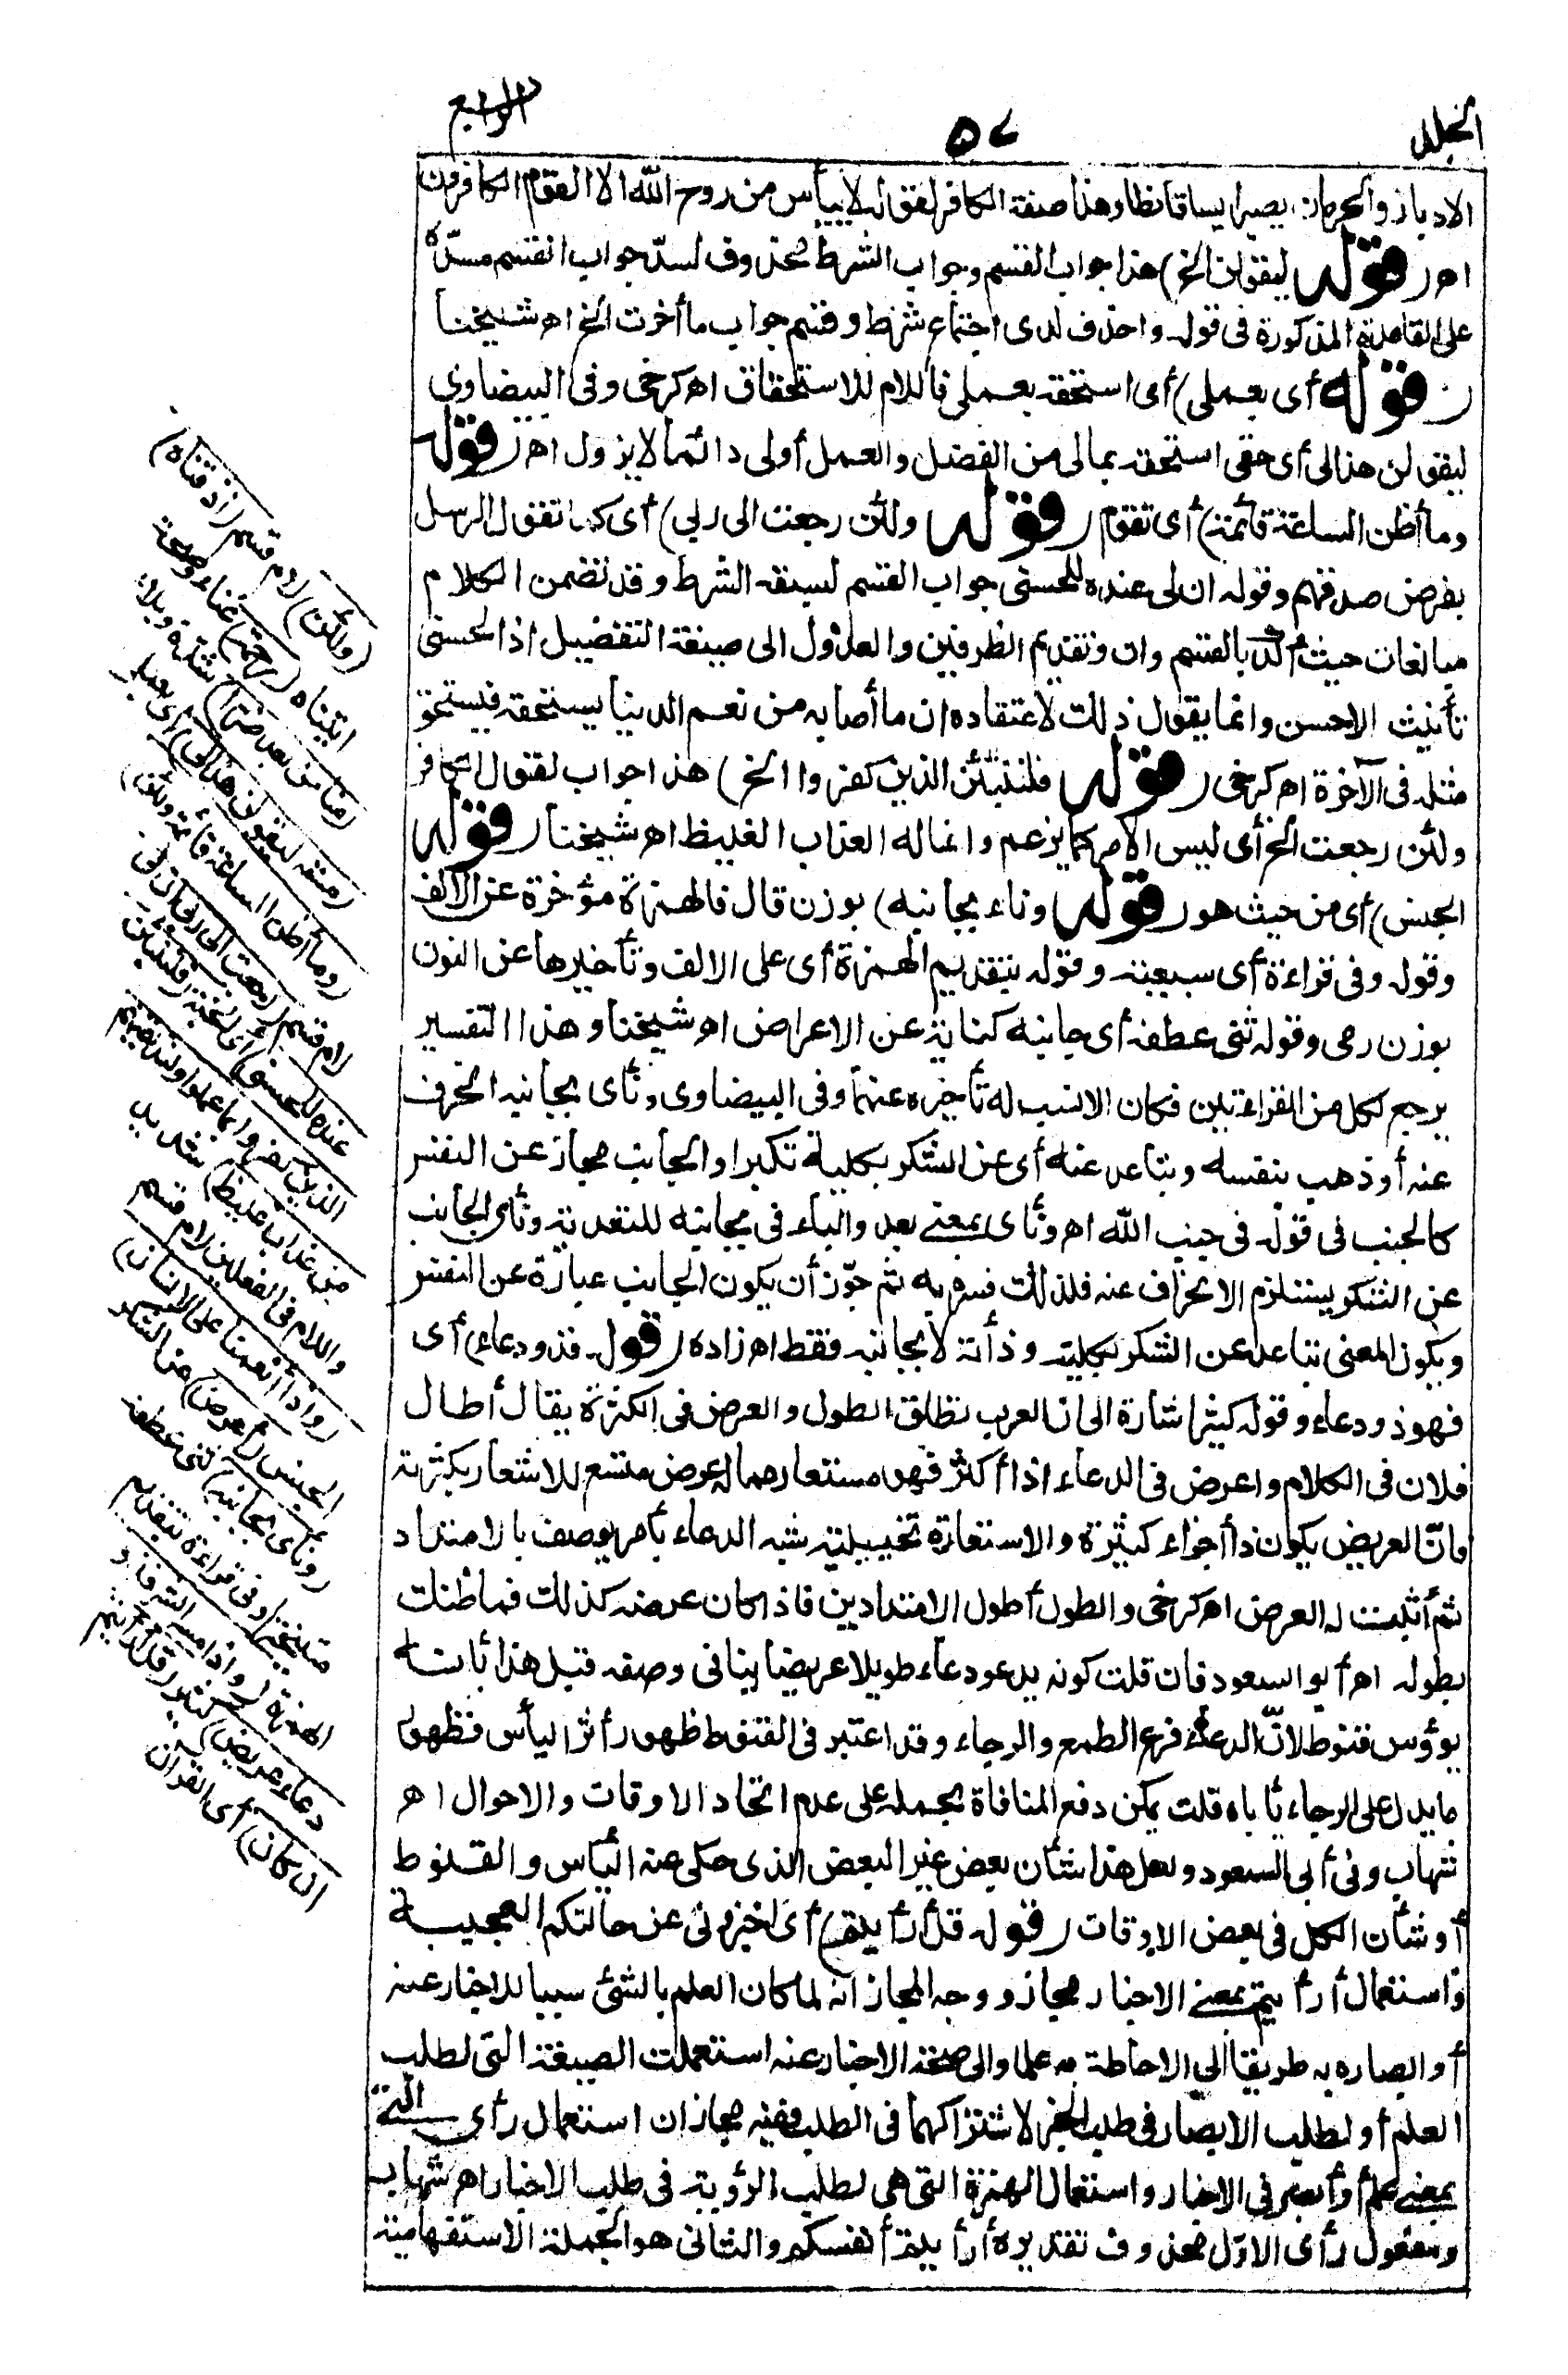 الجلد
٥٧
الرابع
الادبار والحرمان يصير ايسا قانطا وهذا صفة الكافر لقوله لا ييأس من روح الله الا القوم الكافرون
اهـ (قوله ليقولن الخ) هذا جواب القسم وجواب الشرط محذوف لسدّ جواب القسم مسدّه
على القاعدة المذكورة فى قوله واحذف لدى اجتماع شرط وقسم جواب ما أخرت الخ اهـ شيخنا
(قوله أى بعملى) أى استحقه بعملى فاللام للاستحقاق اهـ كرخى وفى البيضاوى
ليقولن هذا لى أى حقى استحقه بمالى من الفضل والعمل أولى دائما لا يزول اهـ (قوله
وما أظن الساعة قائمة) أى تقوم (قوله ولئن رجعت الى ربى) أى كما تقول الرسل
بفرض صدقهم وقوله ان لى عنده للحسنى جواب القسم لسبقه الشرط وقد تضمن الكلام
مبالغات حيث أكد بالقسم وان وتقديم الظرفين والعدول الى صيغة التفضيل اذ الحسنى
تأنيث الاحسن وانما يقول ذلك لاعتقاده ان ما أصابه من نعم الدنيا يستحقه فيستحق
مثله فى الآخرة اهـ كرخى (قوله فلننبئن الذين كفروا الخ) هذا جواب لقول الكافر
ولئن رجعت الخ أى ليس الامر كما يزعم وانما له العذاب الغليظ اهـ شيخنا (قوله
الجنس) أى من حيث هو (قوله وناء بجانبه) بوزن قال فالهمزة مؤخرة عن الالف
وقوله وفى قراءة أى سبعية وقوله بتقديم الهمزة أى على الالف وتأخيرها عن النون
بوزن رمى وقوله ثنى عطفه أى جانبه كناية عن الاعراض اهـ شيخنا وهذا التفسير
يرجع لكل من القراءتين فكان الانسب له تأخيره عنهما وفى البيضاوى ونأى بجانبه انحرف
عنه أو ذهب بنفسه وتباعد عنه أى عن الشكر بكلية تكبرا والجانب مجاز عن النفس
كالجنب فى قوله فى جنب الله اهـ ونأى بمعنى بعد والباء فى بجانبه للتعدية ونأى الجانب
عن الشكر يستلزم الانحراف عنه فلذلك فسره به ثم جوّز أن يكون الجانب عبارة عن النفس
ويكون المعنى تباعد عن الشكر بكليته وذأته لا بجانبه فقط اهـ زاده (قوله فذو دعاء) أى
فهو ذو دعاء وقوله كثير اشارة الى ان العرب تطلق الطول والعرض فى الكثرة يقال أطال
فلان فى الكلام واعرض فى الدعاء اذا أكثر فهو مستعار مما له عرض متسع للاشعار بكثرته
فانّ العريض يكون ذا أجزاء كثيرة والاستعارة تخييلية شبه الدعاء بأمر يوصف بالامتداد
ثم أثبت له العرض اهـ كرخى والطول أطول الامتدادين فاذا كان عرضه كذلك فما ظنك
بطوله اهـ أبو السعود فان قلت كونه يدعو دعاء طويلا عريضا ينافى وصفه قبل هذا بأنه
يؤوس قنوط لانّ الدعاء فرع الطمع والرجاء وقد اعتبر فى القنوط ظهور أثر اليأس فظهور
ما يدل على الرجاء يأباه قلت يمكن دفع المنافاة بحمله على عدم اتحاد الاوقات والاحوال اهـ
شهاب وفى أبى السعود ولعل هذا شأن بعض غير البعض الذى حكى عنه اليأس والقنوط
أو شأن الكل فى بعض الاوقات (قوله قل أرأيتم) أى اخبرونى عن حالتكم العجيبة
واستعمال أرأيتم بمعنى الاخبار مجاز ووجه المجاز انه لما كان العلم بالشئ سببا للاخبار عنه
أو ابصاره به طريقا الى الاحاطة به علما والى صحة الاخبار عنه استعملت الصيغة التى لطلب
العلم أو لطلب الابصار فى طلب الخبر لاشتراكهما فى الطلب ففيه مجازان استعمال رأى التى
بمعنى علم أو أبصر فى الاخبار واستعمال الهمزة التى هى لطلب الرؤية فى طلب الاخبار اهـ شهاب
ومفعول رأى الاوّل محذوف تقديره أرأيتم أنفسكم والثانى هو الجملة الاستفهامية
(ولئن) لام قسم (اذقناه)
اتيناه (رحمة) غناء وصحة
(منا من بعد ضراء) شدة وبلاء
(مسته ليقولن هذا لى) أى بعملى
(وما أظن الساعة قائمة ولئن)
لام قسم (رجعت الى ربى ان لى
عنده للحسنى) أى الجنة (فلننبئن
الذين كفروا بما عملوا ولنذيقنهم
من عذاب غليظ) شديد
واللام فى الفعلين لام قسم
(واذا أنعمنا على الانسان)
الجنس (أعرض) عن الشكر
(ونأى بجانبه) ثنى عطفه
متبخترا وفى قراءة بتقديم
الهمزة (واذا مسه الشر فذو
دعاء عريض) كثير (قل أرأيتم
ان كان) أى القرآن